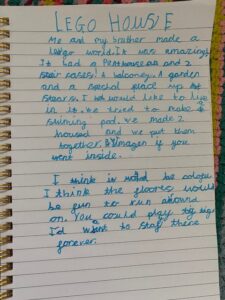 LEGO HOUSE
Me and my brother made a
lego world. It was amazing!
It had a Penthouse an and 2
stair cases. A balconey. A garden
and a special place up
stears. I would like to live
in it. we tried to make a
swiming pool. we made 2
housed and we put them
together. Imagen if you
went inside.
I think it would be
I think the floors would
be fun to run around
on. You could play tig
I'd want to stay there
forever.